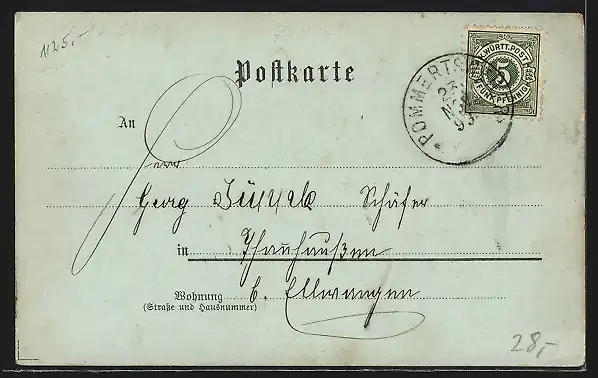 1125.-
Postkarte
K. WÜRTT. POST
5
FÜNF PFENNIG
POMMERTSW
23
NOV
93
An
Herrn
Georg Schäfer
in Thannhaußen
Wohnung b. Ellwangen
(Straße und Hausnummer)
28,-